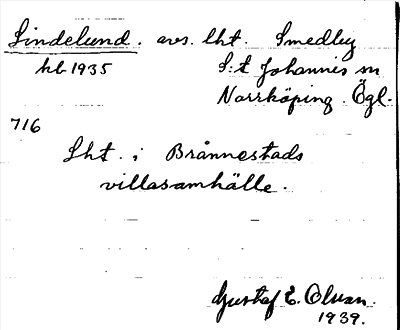 Lindelund. avs. lht. Smedby
hl 1935 S:t Johannis sn
Norrköping. Ögl.
716
Lht. i Brånnestads
villasamhälle.
Gustaf E. Olsson.
1939.